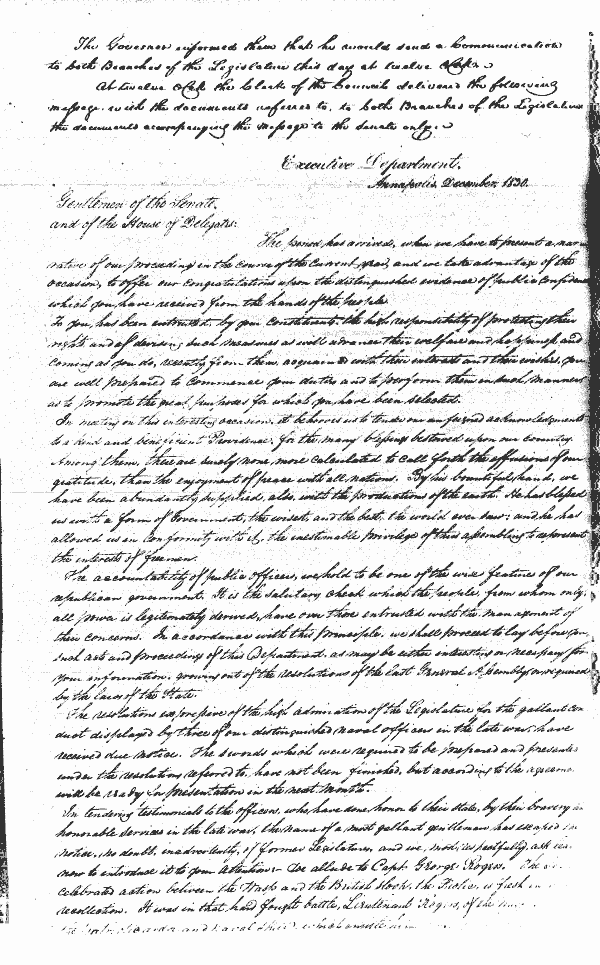 The Governor informed them that he would send a Communication
to both Branches of the Legislature this day at twelve OClock.
At twelve OClock the Clerk of the Council delivered the following
message, with the documents referred to, to both Branches of the Legislature
the documents accompanying the message to the Senate only.
Executive Department,
Annapolis, December, 1830.
Gentlemen of the Senate,
and of the House of Delegates:
The period has arrived, when we have to present a nar
rative of our proceeding in the course of the current year, and we take advantage of the
occasion, to offer our congratulations upon the distinguished evidence of public confidence
which you have received from the hands of the people.
To you, has been entrusted, by your constituents the high responsibility of protecting their
rights and of devising such measures as will advance their welfare and happiness, and
coming as you do, recently from them, acquainted with their interests and their wishes, you
are well prepared to commence your duties and to perform them in such manner
as to promote the great purposes for which you have been selected.
In meeting on this interesting occasion, it behooves us to tender our unfeigned acknowledgments
to a kind and beneficent Providence, for the many blessings bestowed upon our country.
Among them, there are surely none, more calculated to call forth the effusions of our
gratitude, than the enjoyment of peace with all nations. By his bountiful hand, we
have been abundantly supplied, also, with the productions of the earth. He has blessed
us with a form of Government, the wisest, and the best, the world ever saw; and he has
allowed us in conformity with it, the inestimable privilege of thus assembling to represent
the interests of freemen.
The accountability of public officers, we hold to be one of the wise features of our
republican government. It is the salutary check which the people, from whom only,
all power is legitimately derived, have over those entrusted with the management of
their concerns. In accordance with this principle, we shall proceed to lay before you
such acts and proceedings of this Department, as may be either interesting or necessary for
your information, growing out of the resolutions of the last General Assembly or required
by the laws of the State.
The resolutions expressive of the high admiration of the Legislature for the gallant con
duct displayed by three of our distinguished naval officers in the late war, have
received due notice. The swords which were required to be prepared and presented
under the resolutions referred to, have not been finished, but according to the agreeme
will be ready for presentation in the next month.
In tendering testimonials to the officers, who have done honor to their state, by their bravery an
honorable services in the late war, the name of a most gallant gentleman has escaped
notice, no doubt, inadvertently, of former Legislatures, and we, most respectfully, ask
now to introduce it to your attention: We allude to Capt. George Rogers. The
celebrated action between the Wasp and the British sloop, the Frolic, is fresh in
recollection. It was in that, hard fought battle, Lieutenant Rogers, of the